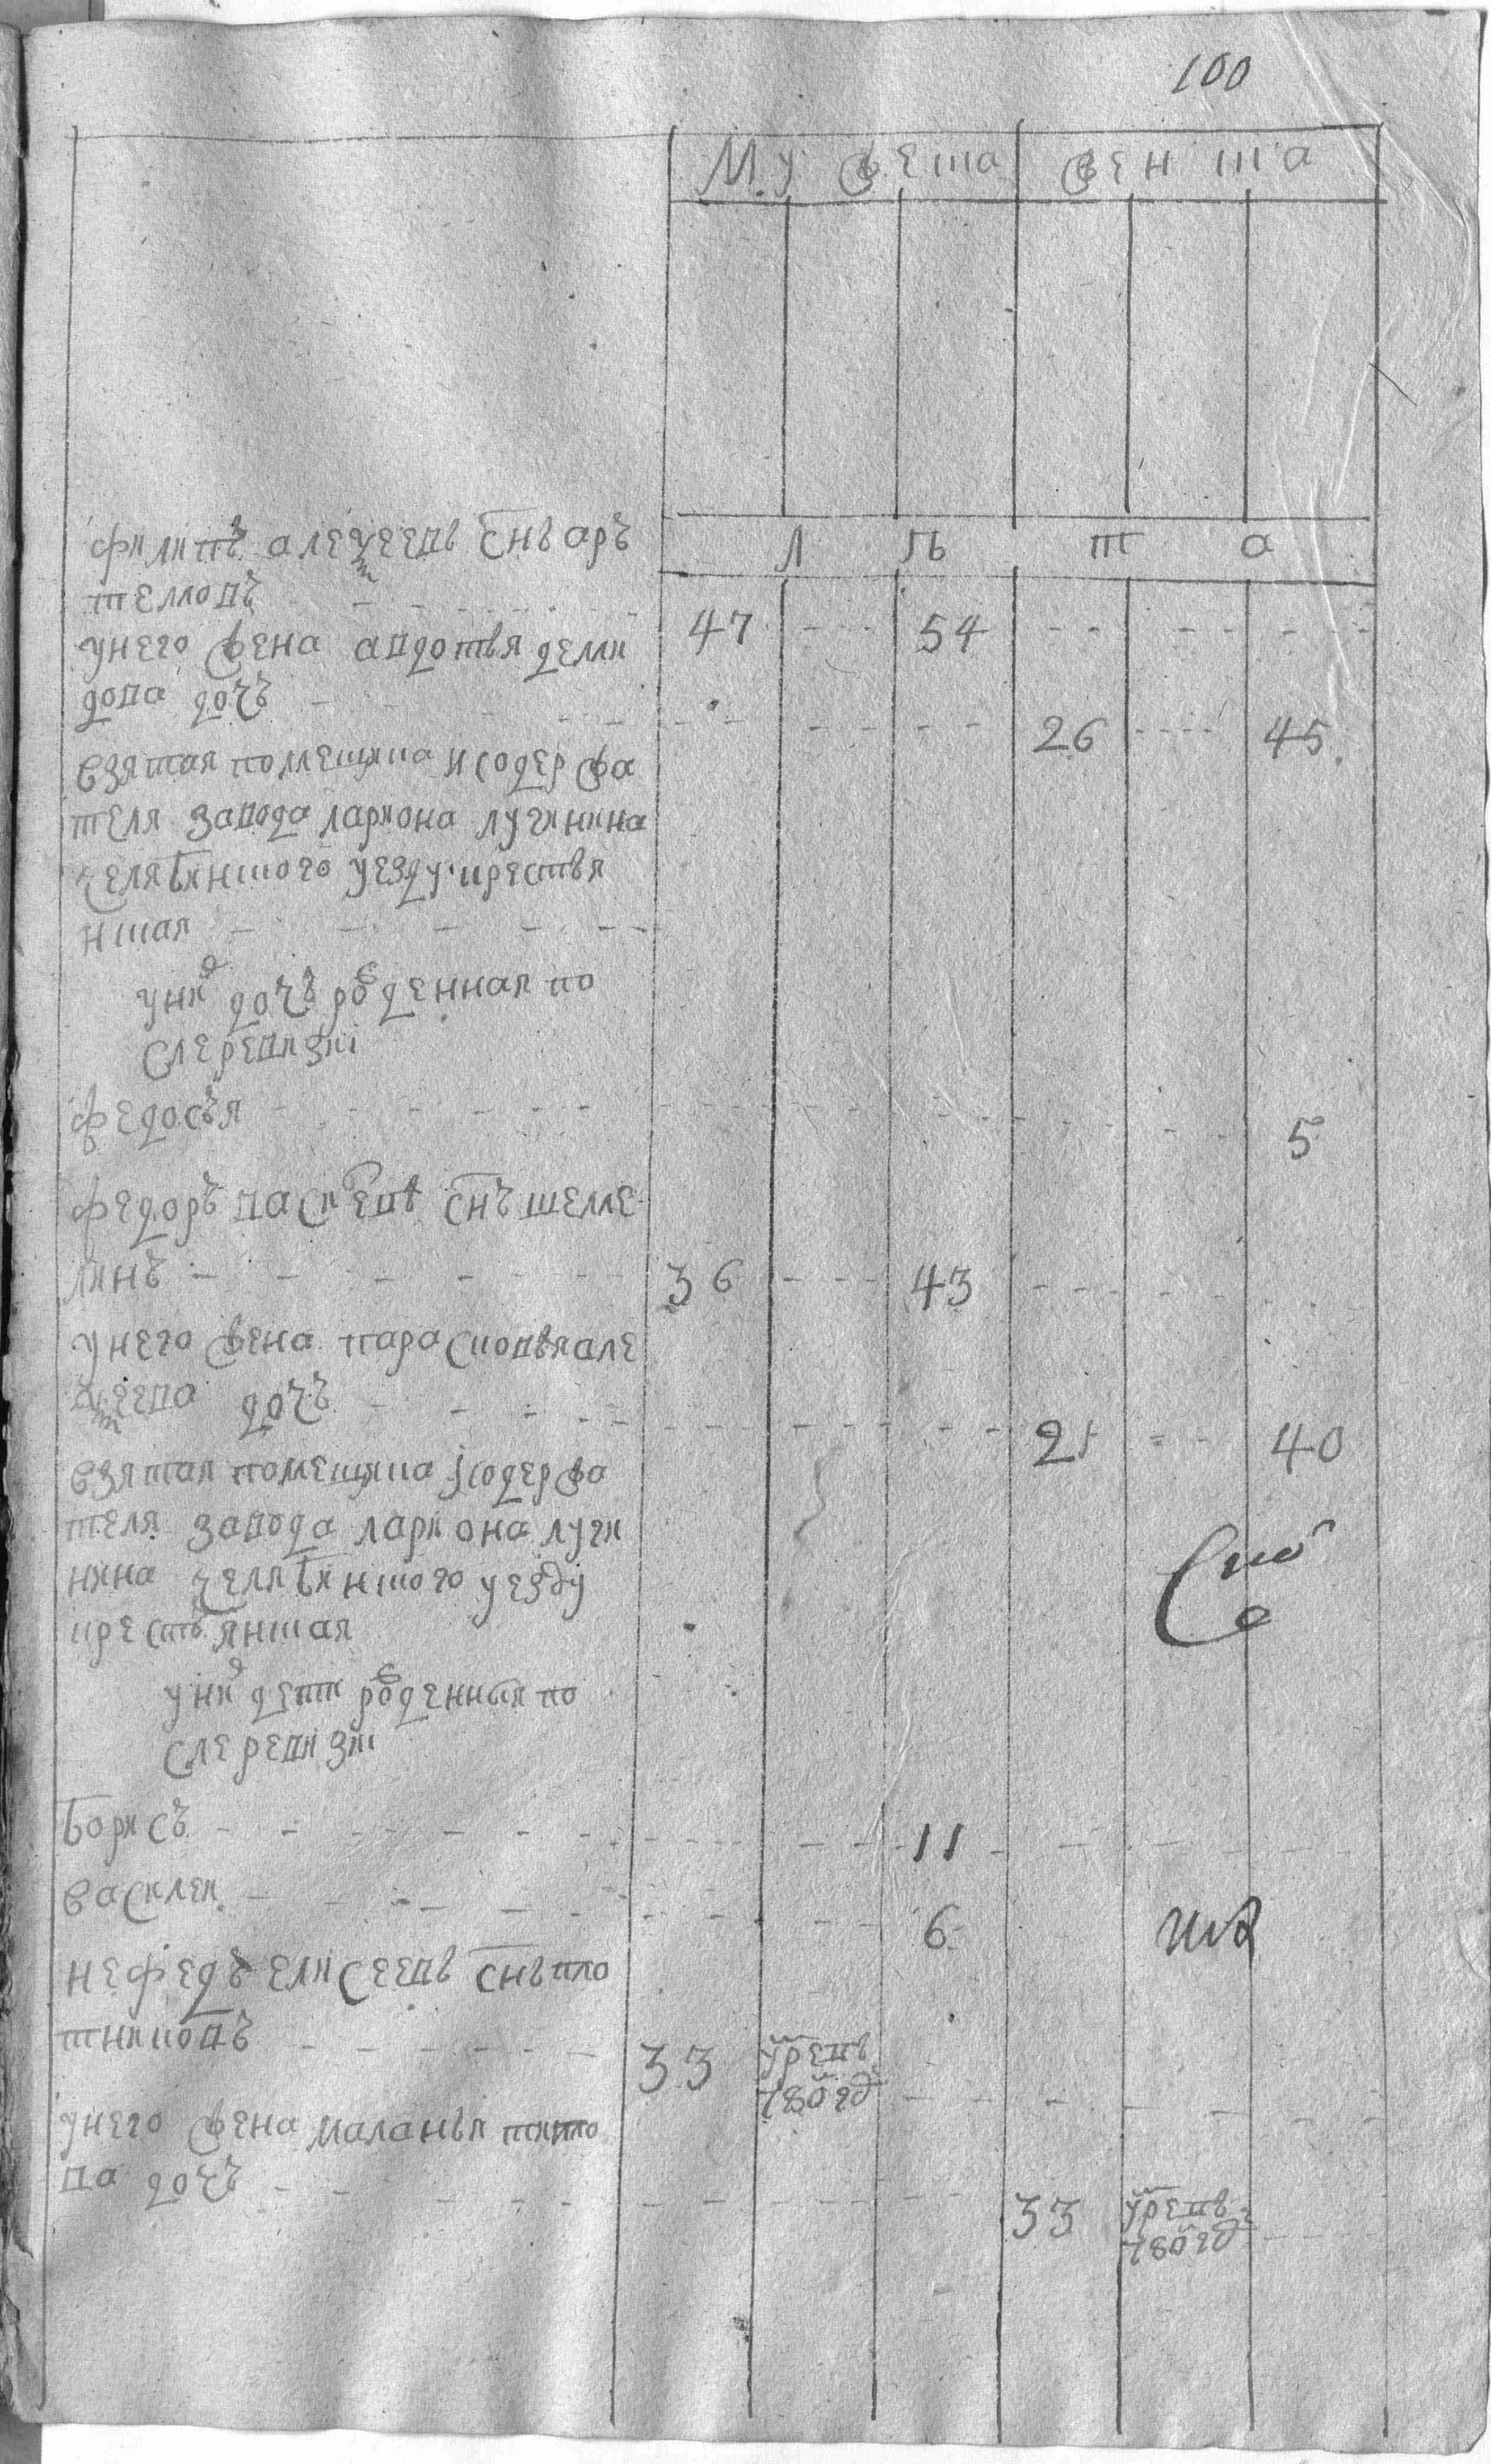 100
мужеска женска
л ѣ т а
филипъ алеѯеевъ снъ вар
темовъ 47 54
унего жена авдотья деми
дова дочь 26 45
взятая помещика исодержа
теля завода лариона лугинина
челябинского уезду крестья
нская
уних дочь рожденная по
слеревизiи
федосья 5
федоръ васильевъ снъ шеме
линъ 36 43
унего жена парасковья але
ѯеева дочь 21 40
взятая помещика исодержа
теля завода лариона луги
нина челябинского уезду
крестьянская
уних дети рожденныя по
слеревизiи
борисъ 11
василеи 6
нефедъ елисеевъ снъ пло
тниковъ 33 умре въ
780м году
унего жена маланья титов
ва дочь 33 умре въ
780м году